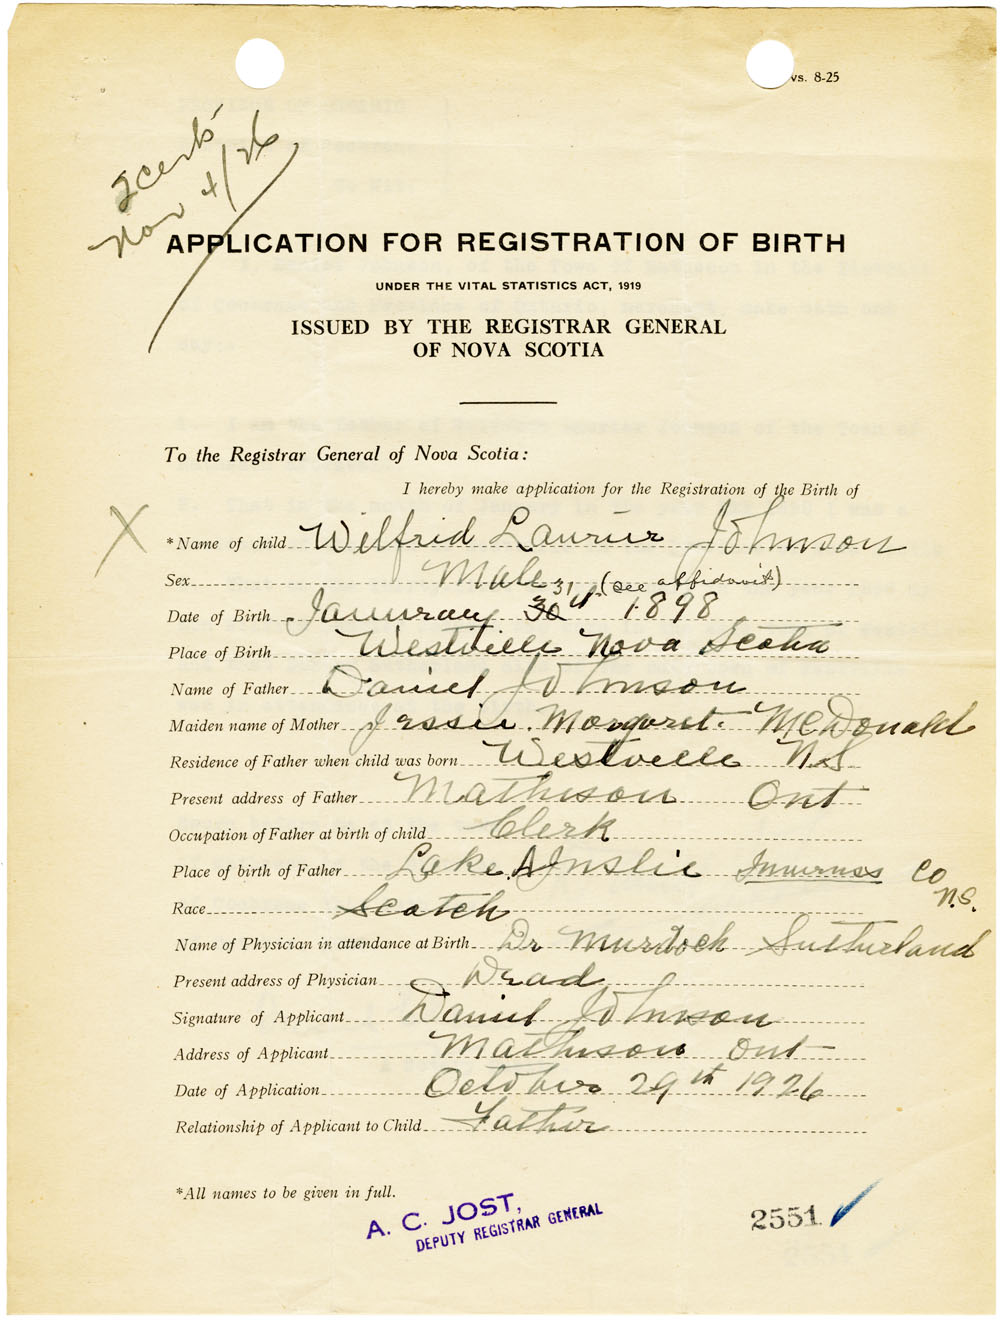 vs. 8-25
2 certs
Nov 4/26
APPLICATION FOR REGISTRATION OF BIRTH
UNDER THE VITAL STATISTICS ACT, 1919
ISSUED BY THE REGISTRAR GENERAL
OF NOVA SCOTIA
To the Registrar General of Nova Scotia:
I hereby make application for the Registration of the Birth of
X
*Name of child Wilfrid Laurier Johnson
Sex Male (see affidavit)
31
Date of Birth Januray 30th 1898
Place of Birth Westville Nova Scotia
Name of Father Daniel Johnson
Maiden name of Mother Jessie Margaret McDonald
Residence of Father when child was born Westville N.S
Present address of Father Matheson Ont
Occupation of Father at birth of child Clerk
Place of birth of Father Lake Ainslie Inverness Co
N.S.
Race Scotch
Name of Physician in attendance at Birth Dr Murdock Sutherland
Present address of Physician Dead
Signature of Applicant Daniel Johnson
Address of Applicant Matheson Ont
Date of Application October 29th 1926
Relationship of Applicant to Child Father
*All names to be given in full.
A. C. JOST,
DEPUTY REGISTRAR GENERAL
2551